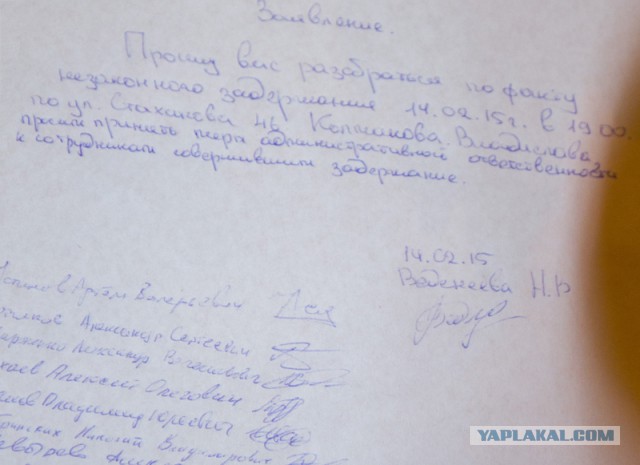 Заявление.
Прошу вас разобраться по факту
незаконного задержания 14.02.15г. в 19 00.
по ул. Стаханова 46 Колтакова Владислава
просим принять меры административной ответственности
к сотрудникам совершившим задержание.
14.02.15
Веденеева Н.В
Артём Валерьевич
Александр Сергеевич
Александр
Алексей Олегович
Владимир Юрьевич
Николай Владимирович
YAPLAKAL.COM